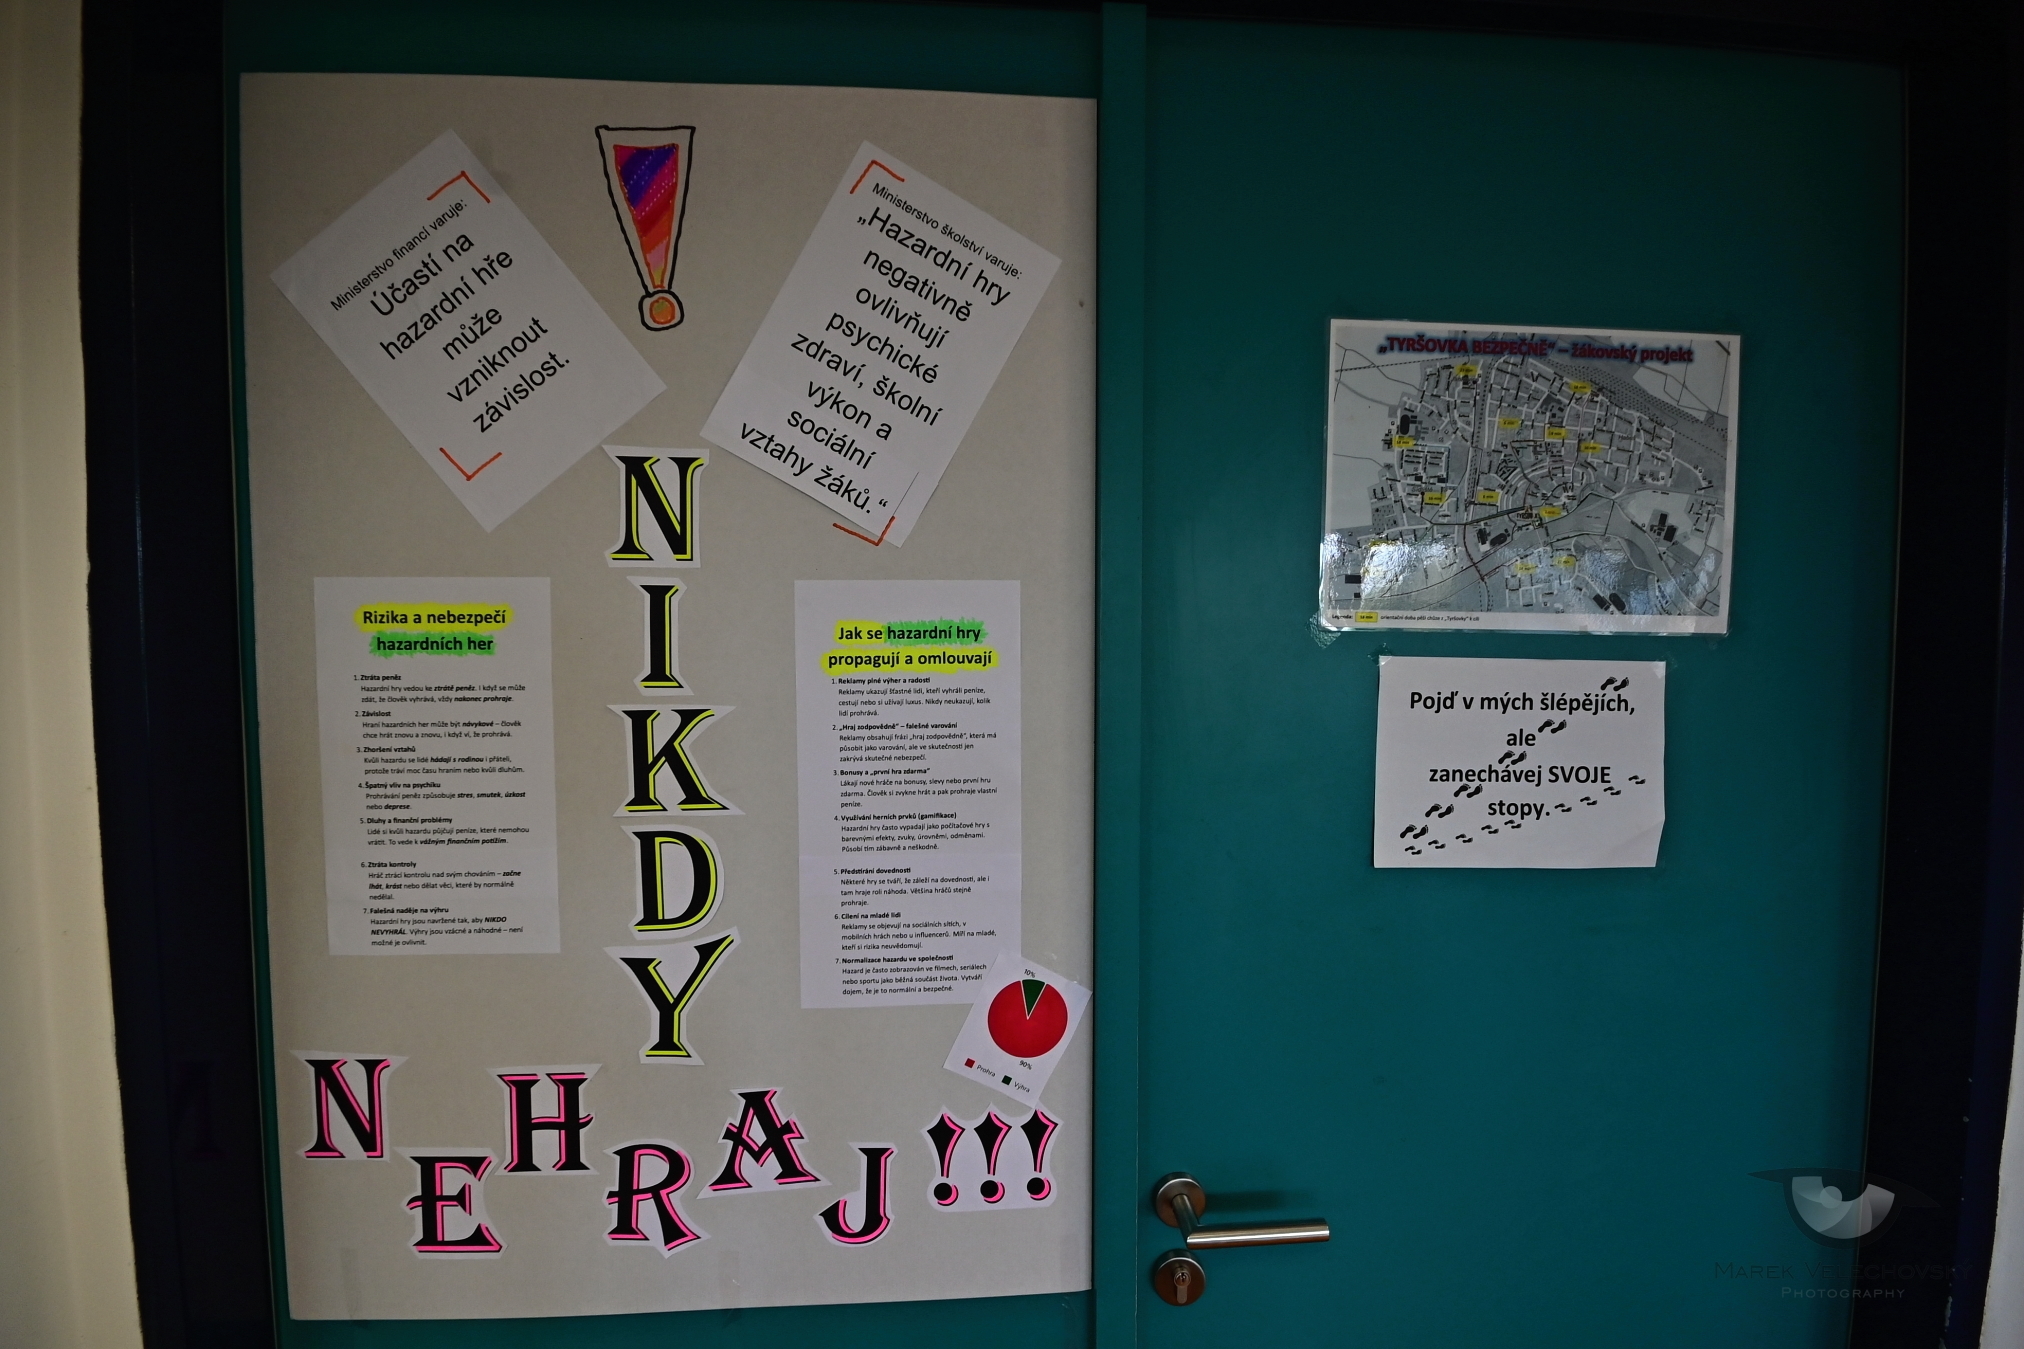 Ministerstvo financí varuje:
Účastí na
hazardní hře
může
vzniknout
závislost.
Ministerstvo školství varuje:
„Hazardní hry
negativně
ovlivňují
psychické
zdraví, školní
výkon a
sociální
vztahy žáků.“
NIKDY
NEHRAJ!!!
Rizika a nebezpečí
hazardních her
1. Ztráta peněz
Hazardní hry vedou ke ztrátě peněz. I když se může
zdát, že člověk vyhrává, vždy nakonec prohraje.
2. Závislost
Hraní hazardních her může být návykové – člověk
chce hrát znovu a znovu, i když ví, že prohrává.
3. Zhoršení vztahů
Kvůli hazardu se lidé hádají s rodinou i přáteli,
protože tráví moc času hraním nebo kvůli dluhům.
4. Špatný vliv na psychiku
Prohrávání peněz způsobuje stres, smutek, úzkost
nebo deprese.
5. Dluhy a finanční problémy
Lidé si kvůli hazardu půjčují peníze, které nemohou
vrátit. To vede k vážným finančním potížím.
6. Ztráta kontroly
Hráč ztrácí kontrolu nad svým chováním – začne
lhát, krást nebo dělat věci, které by normálně
nedělal.
7. Falešná naděje na výhru
Hazardní hry jsou navržené tak, aby NIKDO
NEVYHRÁL. Výhry jsou vzácné a náhodné – není
možné je ovlivnit.
Jak se hazardní hry
propagují a omlouvají
1. Reklamy plné výher a radosti
Reklamy ukazují šťastné lidi, kteří vyhráli peníze,
cestují nebo si užívají luxus. Nikdy neukazují, kolik
lidí prohrává.
2. „Hraj zodpovědně“ – falešné varování
Reklamy obsahují frázi „hraj zodpovědně“, která má
působit jako varování, ale ve skutečnosti jen
zakrývá skutečné nebezpečí.
3. Bonusy a „první hra zdarma“
Lákají nové hráče na bonusy, slevy nebo první hru
zdarma. Člověk si zvykne hrát a pak prohraje vlastní
peníze.
4. Využívání herních prvků (gamifikace)
Hazardní hry často vypadají jako počítačové hry s
barevnými efekty, zvuky, úrovněmi, odměnami.
Působí tím zábavně a neškodně.
5. Předstírání dovednosti
Některé hry se tváří, že záleží na dovednosti, ale i
tam hraje roli náhoda. Většina hráčů stejně
prohraje.
6. Cílení na mladé lidi
Reklamy se objevují na sociálních sítích, v
mobilních hrách nebo u influencerů. Míří na mladé,
kteří si rizika neuvědomují.
7. Normalizace hazardu ve společnosti
Hazard je často zobrazován ve filmech, seriálech
nebo sportu jako běžná součást života. Vytváří
dojem, že je to normální a bezpečné.
10%
90%
Prohra Výhra
„TYRŠOVKA BEZPEČNĚ“ – žákovský projekt
Legenda: orientační doba pěší chůze z „Tyršovky“ k cíli
Pojď v mých šlépějích,
ale
zanechávej SVOJE
stopy.
MAREK VELECHOVSKÝ
PHOTOGRAPHY